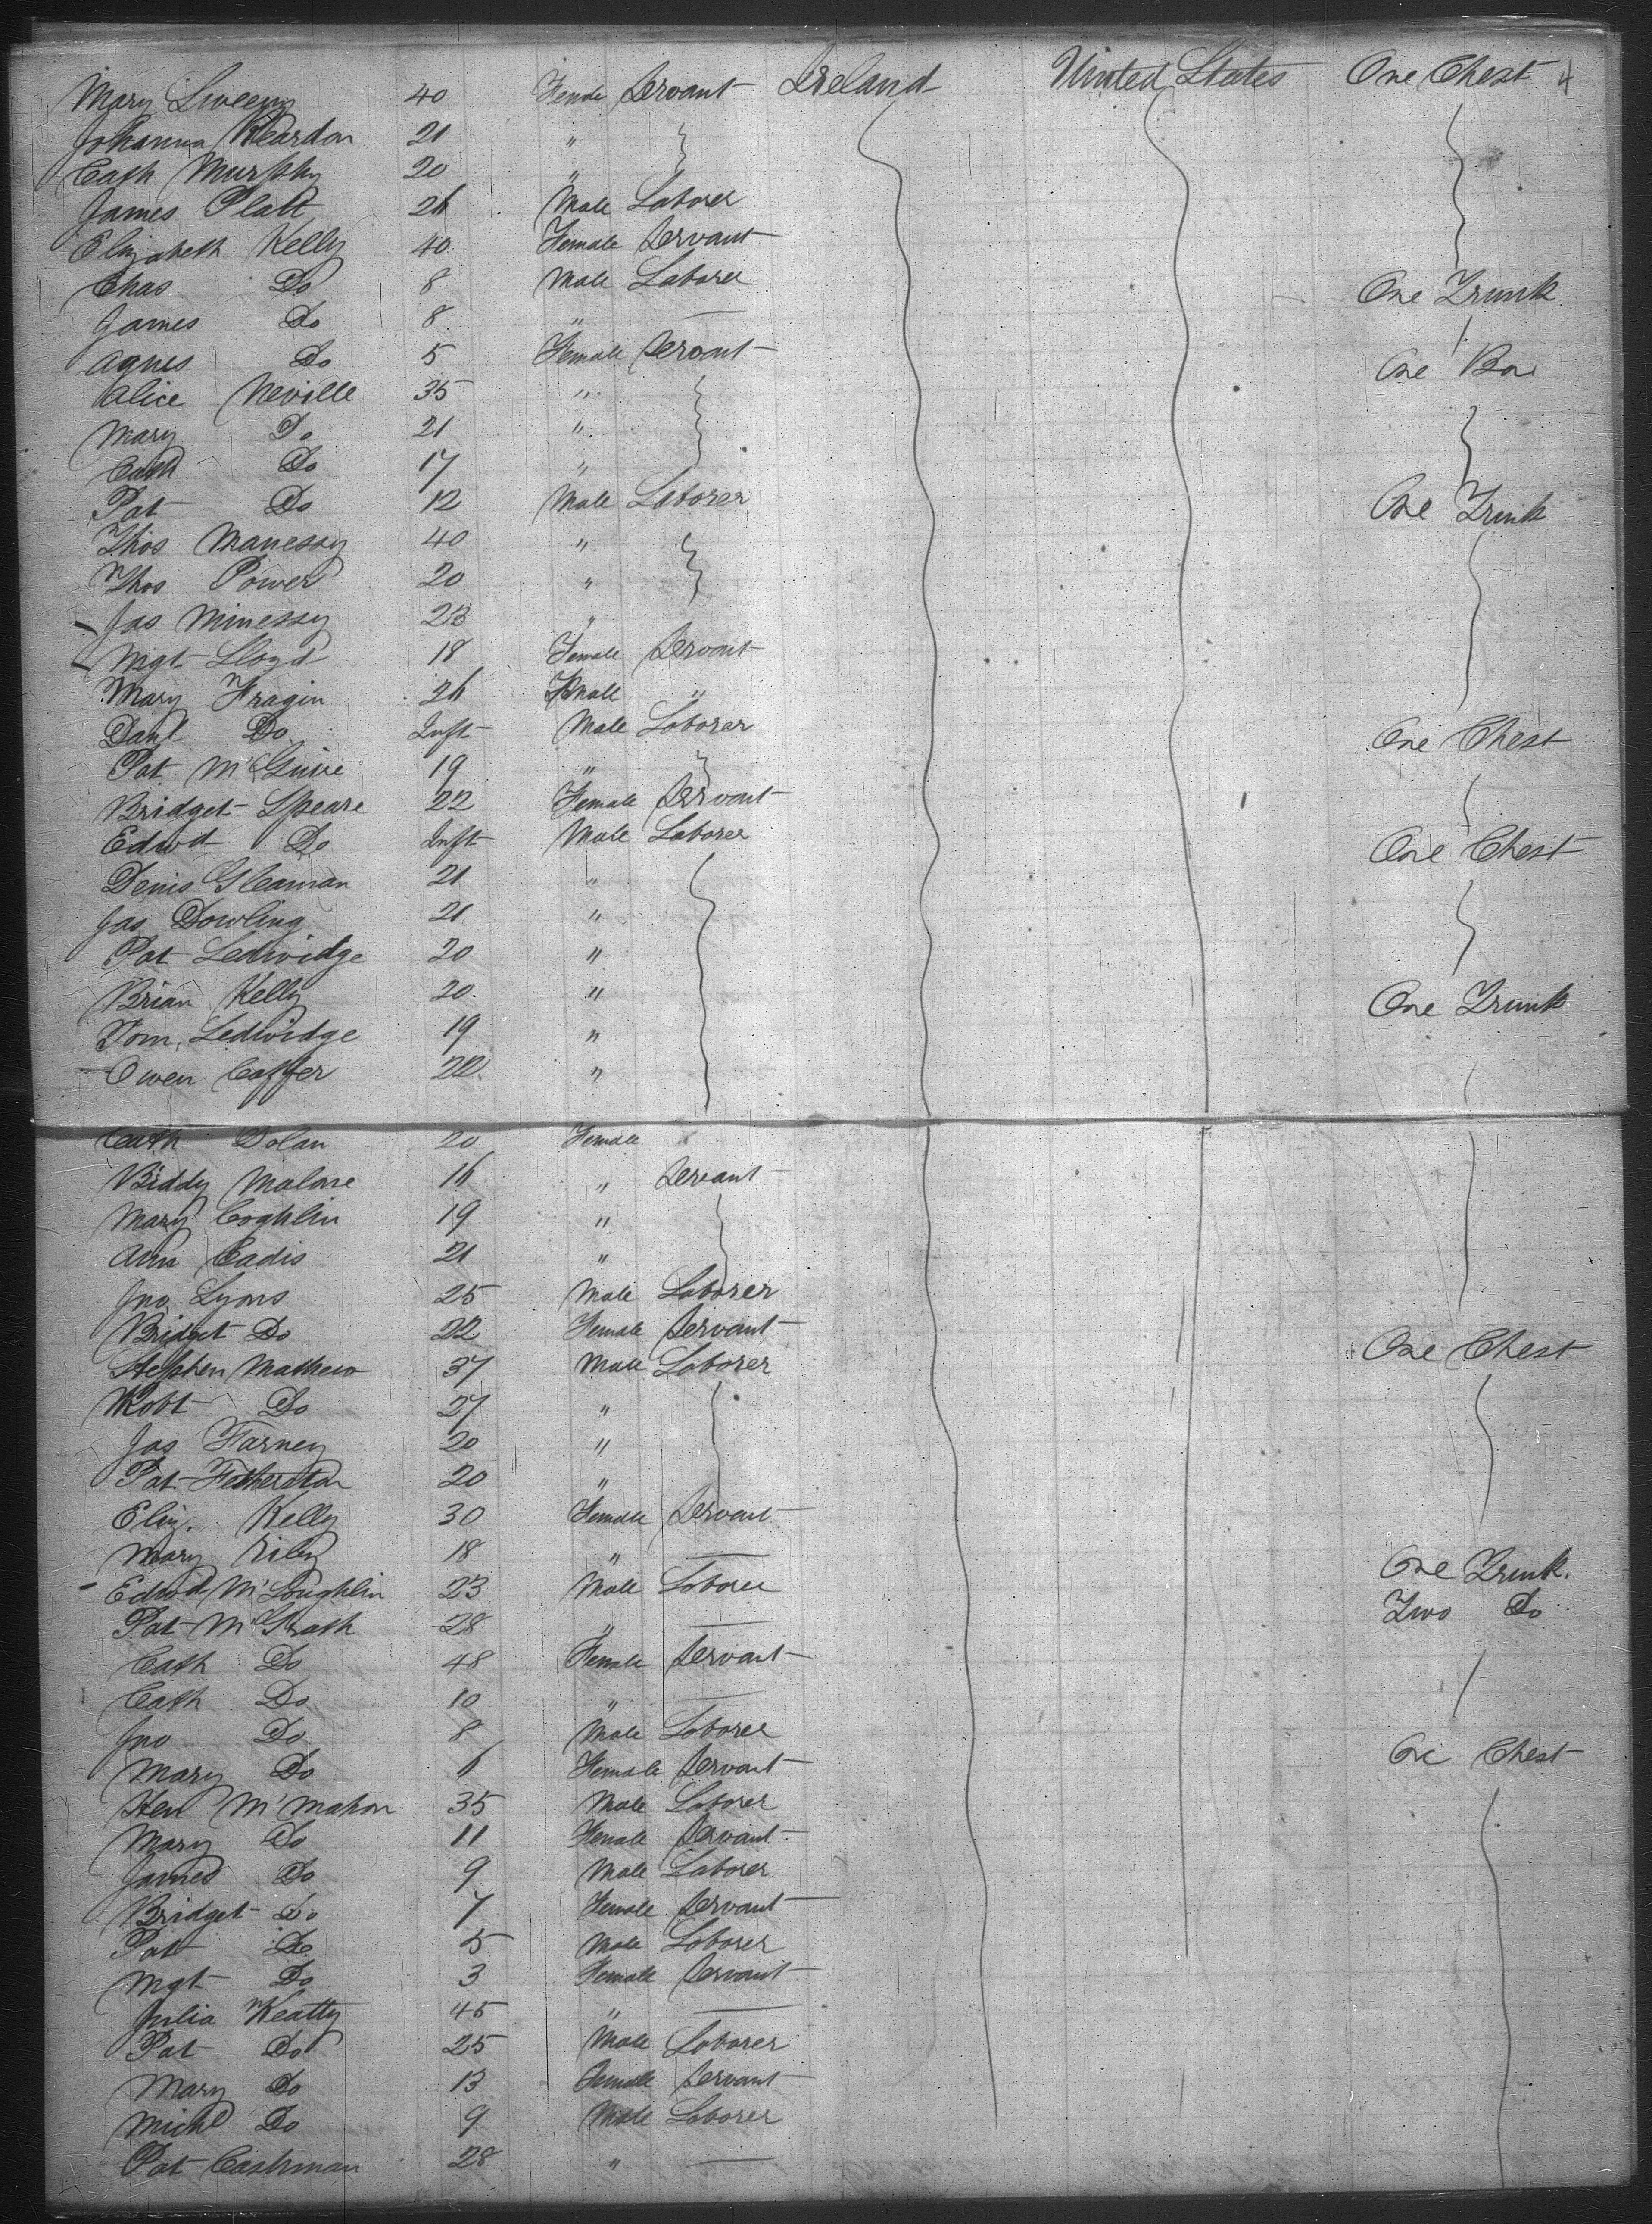 Mary Sweeny 40 Female Servant Ireland United States One Chest 4
Johanna Reardon 21 "
Cath Murphy 20 "
James Platt 26 Male Laborer
Elizabeth Kelly 40 Female Servant
Chas Do 8 Male Laborer One Trunk
James Do 8 " —
Agnes Do 5 Female Servant One Box
Alice Neville 35 "
Mary Do 21 "
Cath Do 17 "
Pat Do 12 Male Laborer One Trunk
Thos Manessy 40 "
Thos Power 20 "
Jas Minessy 23 "
Mgt Lloyd 18 Female Servant
Mary Fragin 26 "
Danl Do Inft Male Laborer One Chest
Pat McGuire 19 "
Bridget Speare 22 Female Servant
Edwd Do Inft Male Laborer One Chest
Denis Gleaman 21 "
Jas Dowling 21 "
Pat Ledwidge 20 "
Brian Kelly 20 " One Trunk
Tom Ledwidge 19 "
Owen Coffer 22 "
Cath Dolan 20 Female
Biddy Malone 16 " Servant
Mary Coghlin 19 "
Ann Cadis 21 "
Jno Lyons 25 Male Laborer
Bridget Do 22 Female Servant One Chest
Stephen Mathew 37 Male Laborer
Robt Do 27 "
Jas Farney 20 "
Pat Fetherston 20 "
Eliz. Kelly 30 Female Servant
Mary Riley 18 " — One Trunk.
Edwd McLoughlin 23 Male Laborer Two Do
Pat McGrath 28 " —
Cath Do 48 Female Servant
Cath Do 10 " —
Jno Do 8 Male Laborer One Chest
Mary Do 6 Female Servant
Hen McMahon 35 Male Laborer
Mary Do 11 Female Servant
James Do 9 Male Laborer
Bridget Do 7 Female Servant
Pat Do 5 Male Laborer
Mgt Do 3 Female Servant
Julia Keatty 45 " —
Pat Do 25 Male Laborer
Mary Do 13 Female Servant
Michl Do 9 Male Laborer
Pat Cashman 28 " —